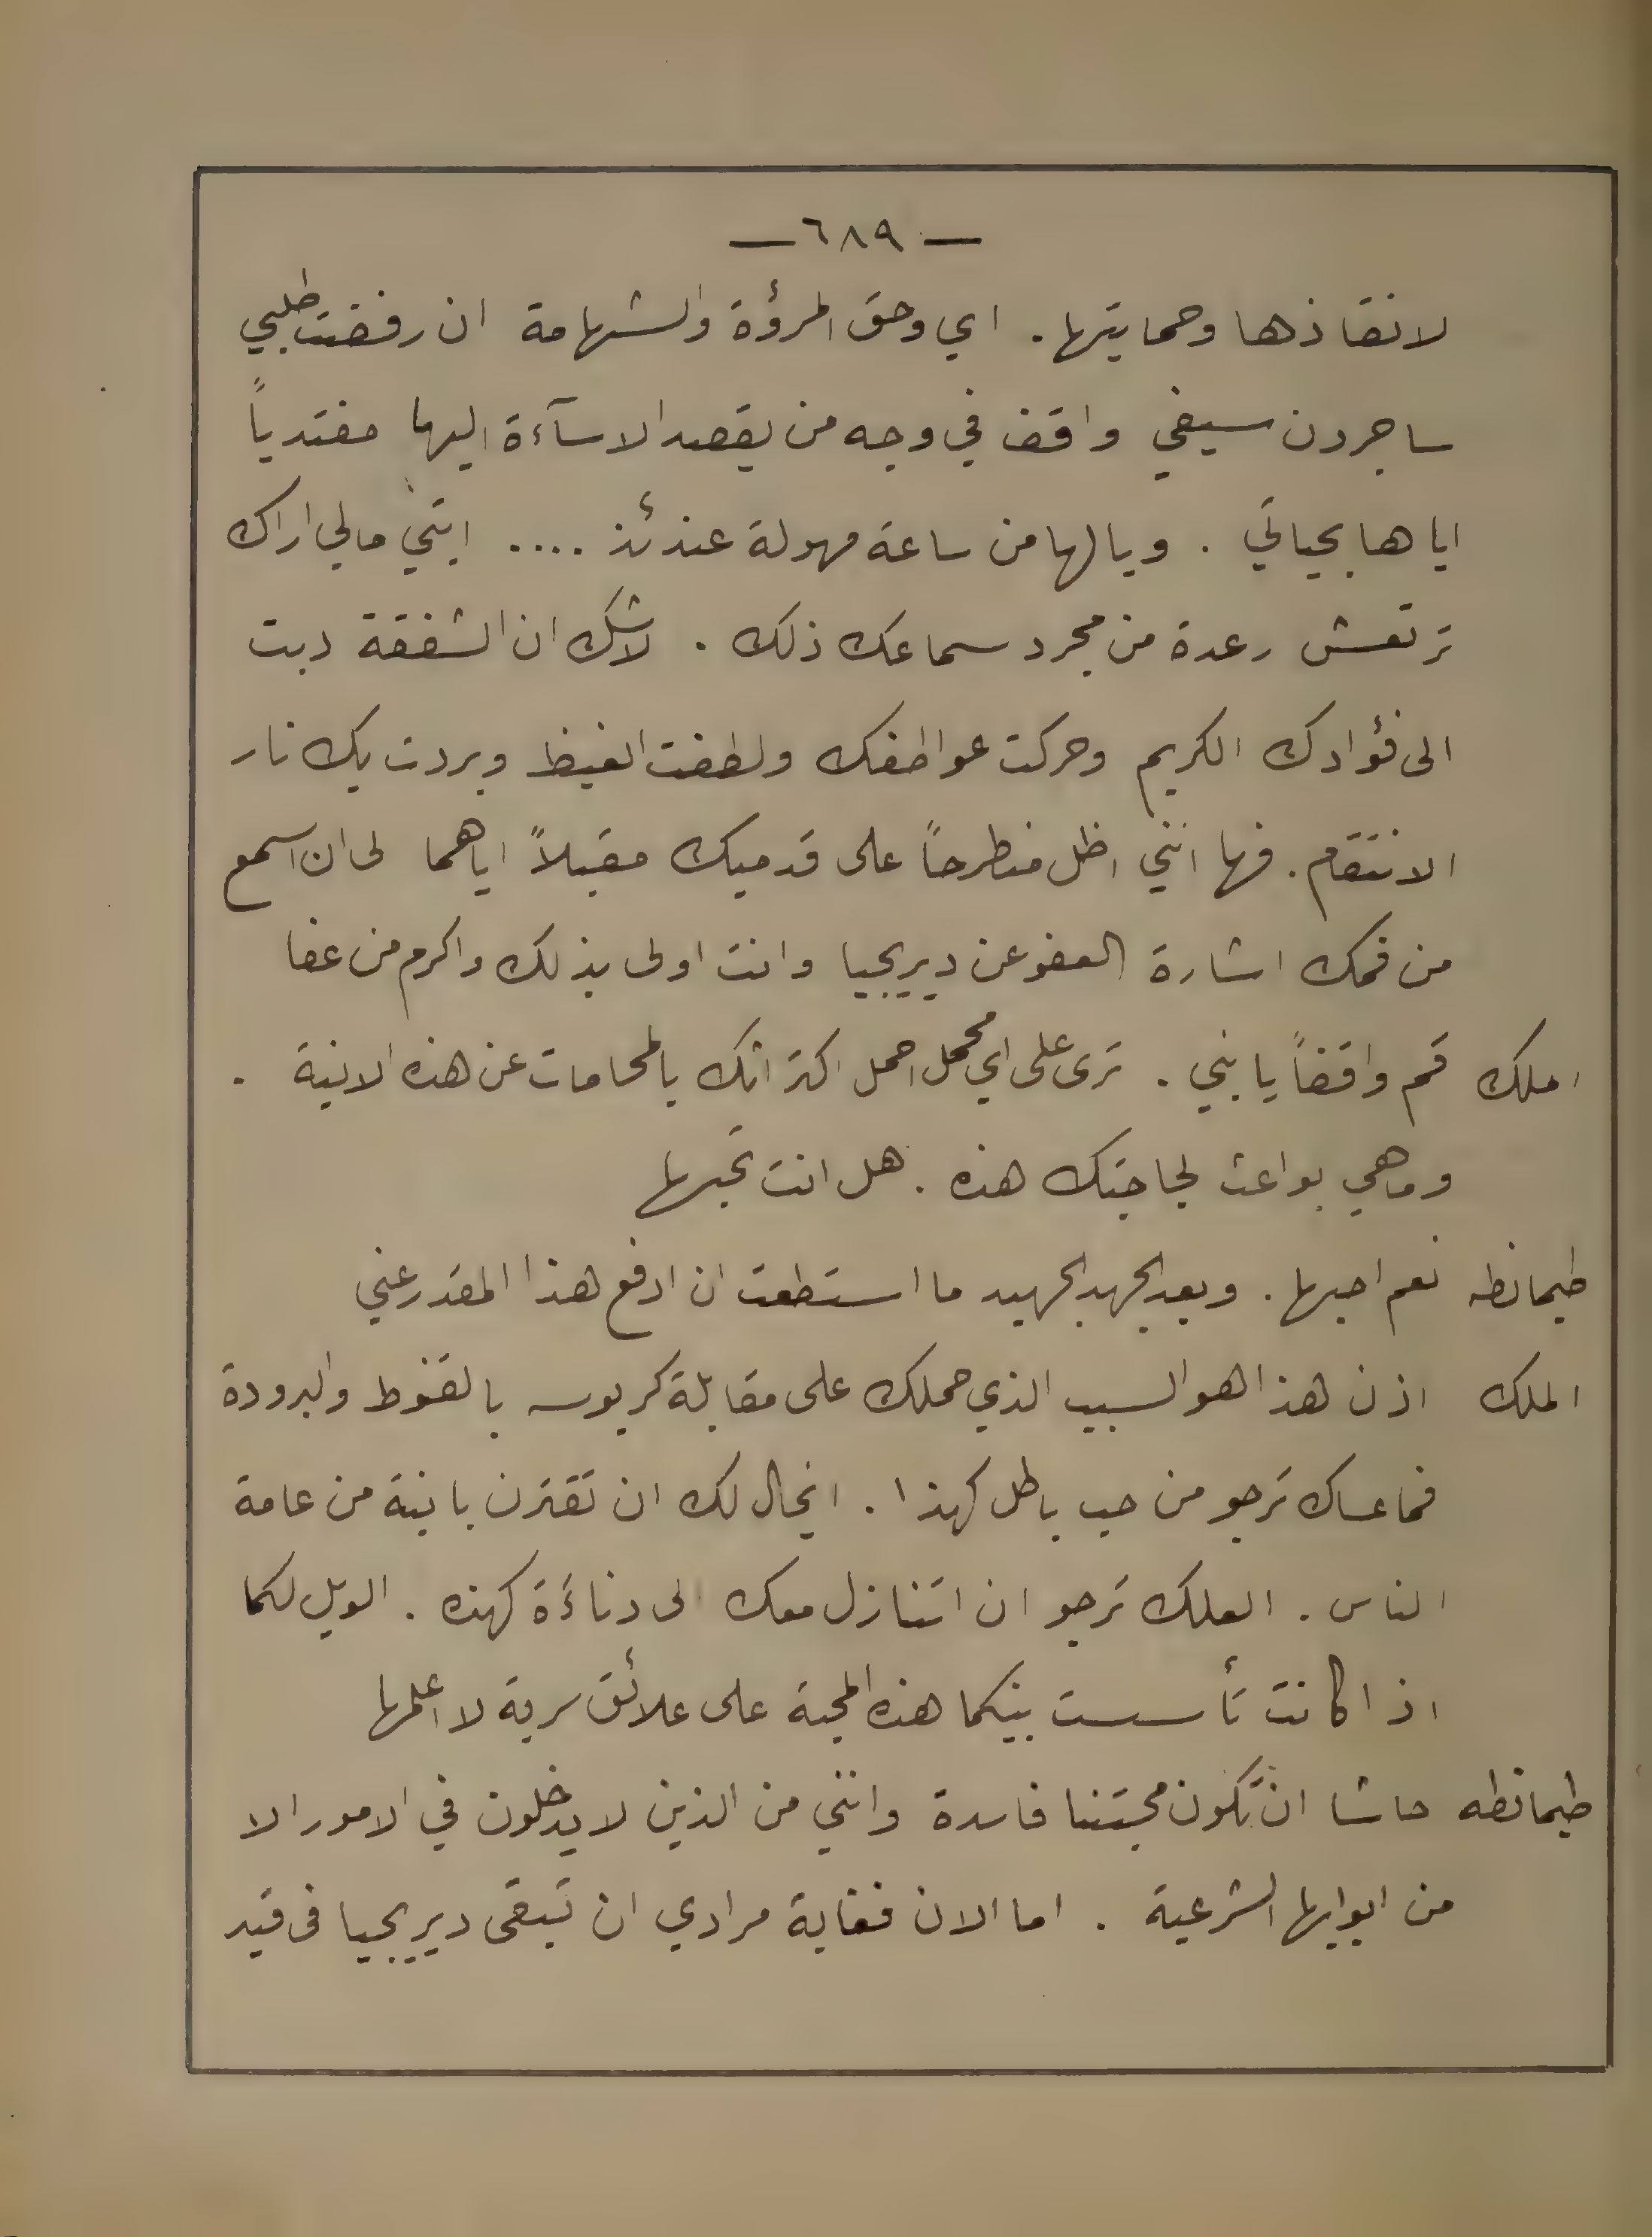 — ٦٨٩ —
لانقاذها وحمايتها . اي وحق المرؤة والشهامة ان رفضت طلبي
ساجردن سيفي واقف في وجه من يقصد الاسآءة اليها مفتدياً
اياها بحياتي . ويالها من ساعة مهولة عندئذ .... ابتي مالي اراك
ترتعش رعدة من مجرد سماعك ذلك . لاشك ان الشفقة دبت
الى فؤادك الكريم وحركت عواطفك ولطفت الغيظ وبردت بك نار
الانتقام . فها انني اظل منطرحاً على قدميك مقبلاً اياهما لى ان اسمع
من فمك اشارة العفو عن ديريجيا وانت اولى بذلك واكرم من عفا
املك قم واقفاً يا بني . ترى على اي محمل احمل اكتراثك بالمحامات عن هذه الابنة .
وماهي بواعث لجاجتك هذه . هل انت تحبها
طيمانطه نعم احبها . وبعد الجهد الجهيد ما استطعت ان ادفع هذا المقدر عني
الملك اذن هذا هو السبب الذي حملك على مقابلة كريوسه بالقنوط والبرودة
فما عساك ترجو من حب باطل كهذا . ايخال لك ان تقترن بابنة من عامة
الناس . العلك ترجو ان اتنازل معك الى دناءَة كهذه . الويل لكما
اذا كانت تأسست بينكما هذه المحبة على علائق سرية لا اعلمها
طيمانطه حاشا ان تكون محبتنا فاسدة وانني من الذين لا يدخلون في الامور الا
من ابوابها الشرعية . اما الان فغاية مرادي ان تبقى ديريجيا فى قيد